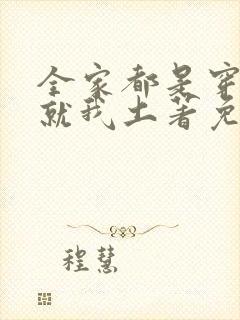 全家都是穿
就我土著免
程慧